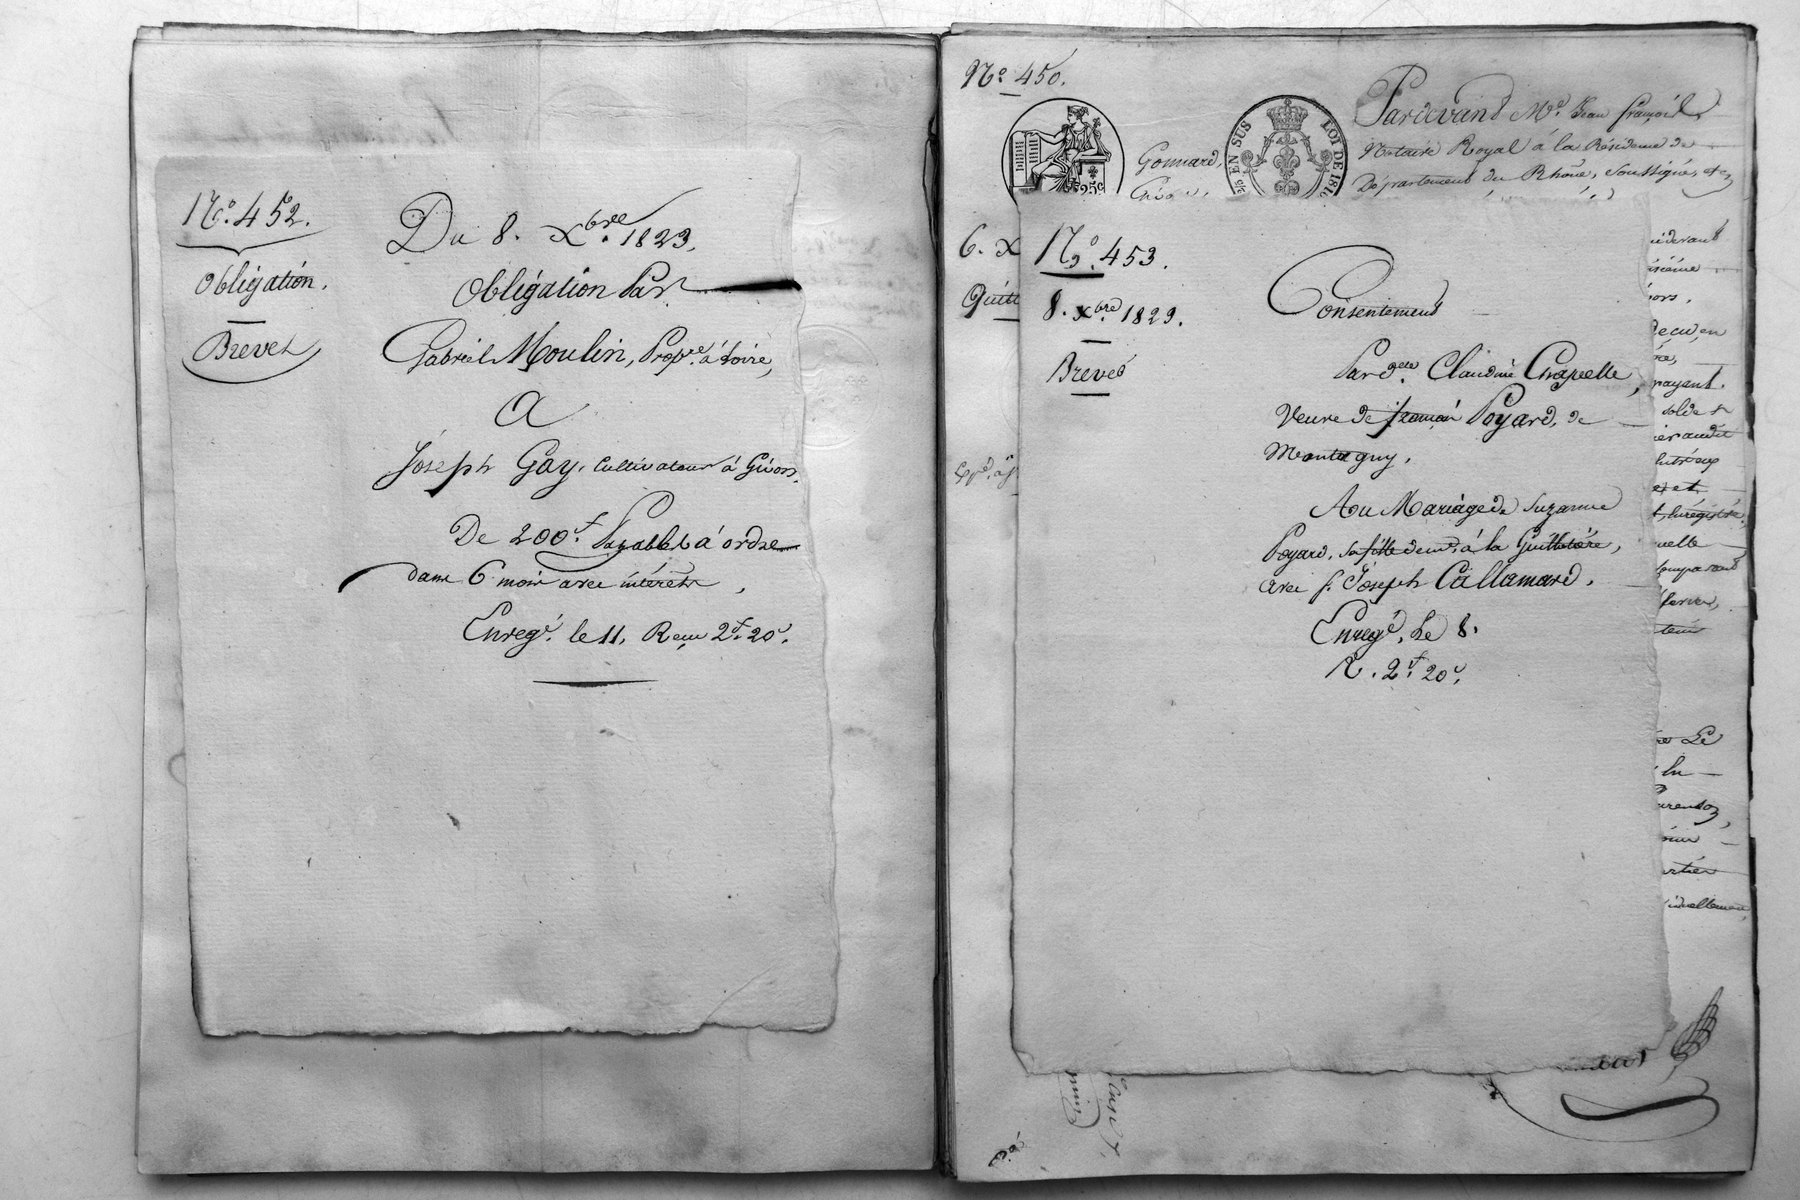 N.º 452.
Obligation.
Brevet
Du 8. Xbre. 1823.
Obligation Par
Gabriel Moulin, Propre. à Loire,
A
Joseph Gay, Cultivateur à Givors.
De 200f. Payables à ordre
dans 6 mois avec intérêts,
Enregé. le 11. Reçu 2f. 20c.
N.º 450.
Pardevant Me. Jean François
Gonnard, Notaire Royal à la Résidence de
Département du Rhône, Soussigné, et
25c
EN SUS
LOI DE 1816
6. X
Quitt
N.º 453.
8. Xbre. 1823.
Brevet
Consentement
Par de. Claudine Chapelle,
Veuve de Poyard, de
Montagny,
Au Mariage de Suzanne
Poyard, sa fille demt. à la Guillotière,
avec s. Joseph Callamard.
Enregé. Le 8.
R. 2f. 20c.